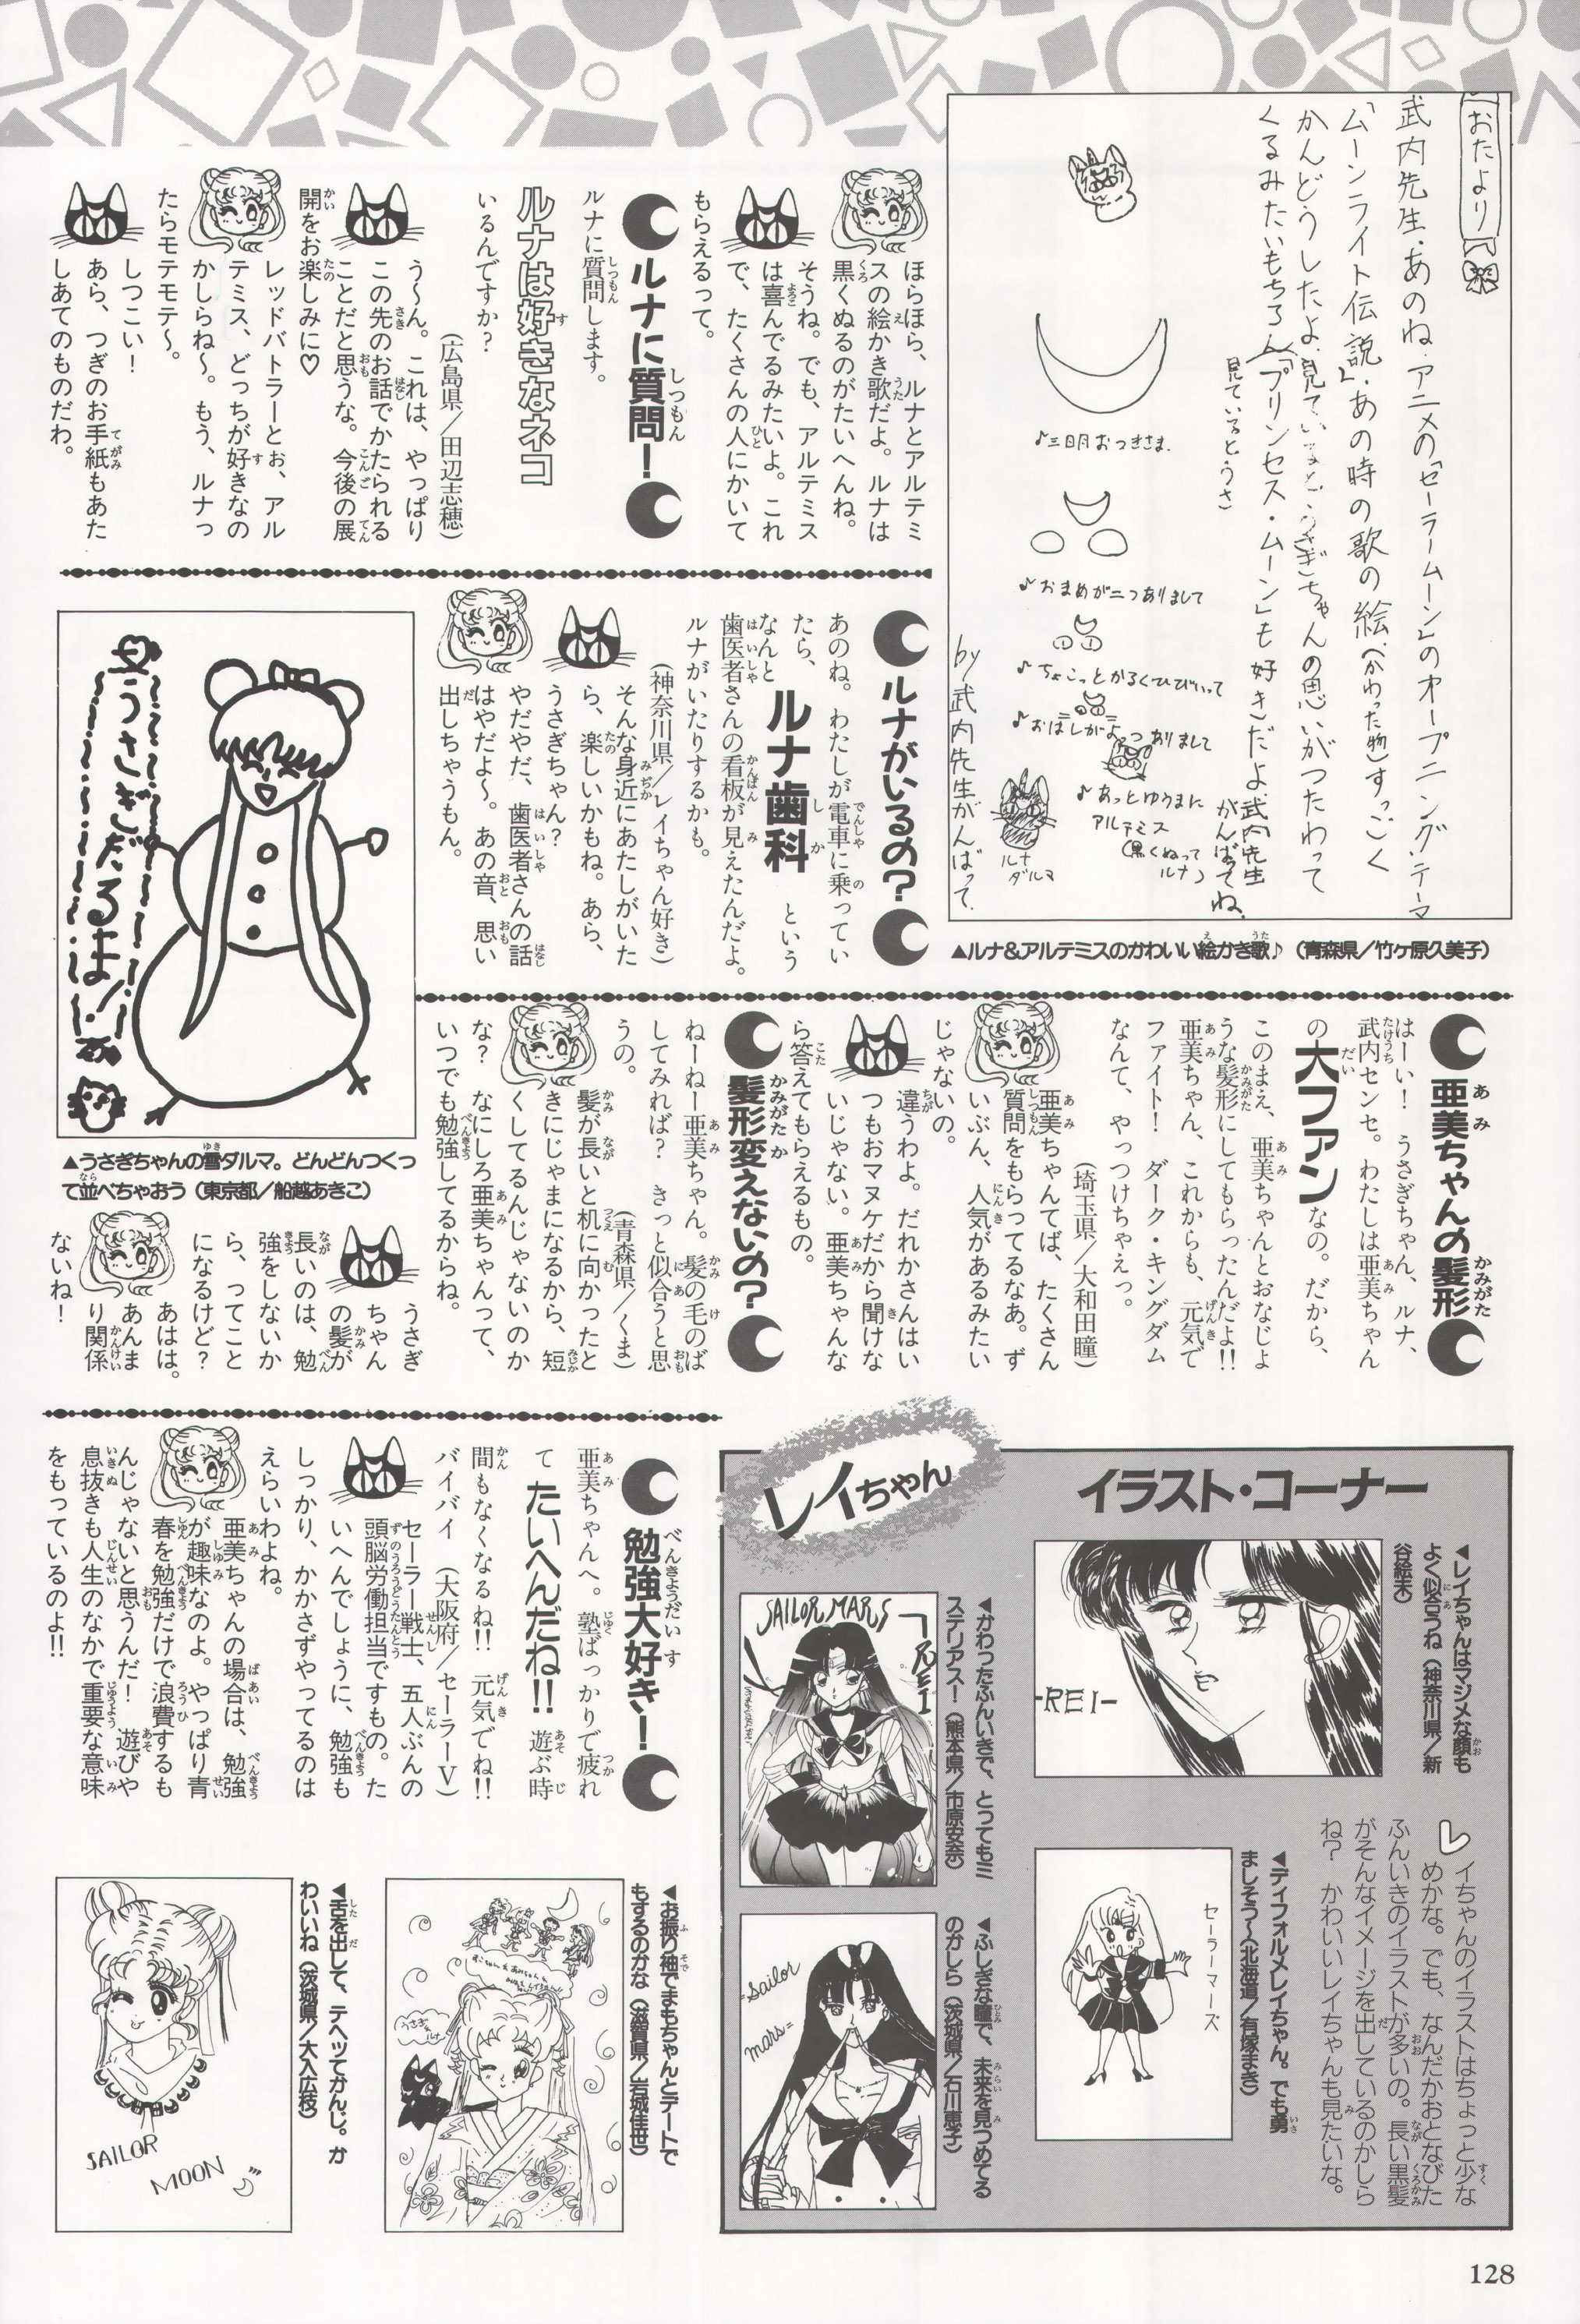 おたより
武内先生・あのね.アニメの「セーラームーン」のオープニング・テーマ
「ムーンライト伝説」・あの時の歌の絵、(かわった物)すっごく
かんどうしたよ.見ているとうさぎちゃんの思いがつたわって
くるみたいもちろん「プリンセス・ムーン」も好きだよ.武内先生
がんばってね.
見ているとうさ
♪三日月おつきさま.
♪おまめが二つありまして
♪ちょこっとかるくひびいって
♪おはしがよっつありまして
♪あっとゆうまに
アルテミス
(黒くぬって
ルナ)
ルナ
ダルマ
by武内先生がんばって
▲ルナ&アルテミスのかわいい絵かき歌♪(青森県/竹ヶ原久美子)
ほらほら、ルナとアルテミ
スの絵かき歌だよ。ルナは
黒くぬるのがたいへんね。
そうね。でも、アルテミス
は喜んでるみたいよ。これ
で、たくさんの人にかいて
もらえるって。
ルナに質問!
ルナに質問します。
ルナは好きなネコ
いるんですか?
(広島県/田辺志穂)
う〜ん。これは、やっぱり
この先のお話でかたられる
ことだと思うな。今後の展
開をお楽しみに♡
レッドバトラーとぉ、アル
テミス、どっちが好きなの
かしらね〜。もう、ルナっ
たらモテモテ〜。
しつこい!
あら、つぎのお手紙もあた
しあてのものだわ。
ルナがいるの?
あのね。わたしが電車に乗ってい
たら、
なんと
ルナ歯科
という
歯医者さんの看板が見えたんだよ。
ルナがいたりするかも。
(神奈川県/レイちゃん好き)
そんな身近にあたしがいた
ら、楽しいかもね。あら、
うさぎちゃん?
やだやだ、歯医者さんの話
はやだよ〜。あの音、思い
出しちゃうもん。
雪うさぎだるまよ!
▲うさぎちゃんの雪ダルマ。どんどんつくっ
て並べちゃおう(東京都/船越あきこ)
亜美ちゃんの髪形
はーい! うさぎちゃん、ルナ、
武内センセ。わたしは亜美ちゃん
の大ファンなの。だから、
このまえ、亜美ちゃんとおなじよ
うな髪形にしてもらったんだよ!!
亜美ちゃん、これからも、元気で
ファイト! ダーク・キングダム
なんて、やっつけちゃえっ。
(埼玉県/大和田瞳)
亜美ちゃんてば、たくさん
質問をもらってるなあ。ず
いぶん、人気があるみたい
じゃないの。
違うわよ。だれかさんはい
つもおマヌケだから聞けな
いじゃない。亜美ちゃんな
ら答えてもらえるもの。
髪形変えないの?
ねーねー亜美ちゃん。髪の毛のば
してみれば? きっと似合うと思
うの。
(青森県/くま)
髪が長いと机に向かったと
きにじゃまになるから、短
くしてるんじゃないのか
な? なにしろ亜美ちゃんって、
いつでも勉強してるからね。
うさぎ
ちゃん
の髪が
長いのは、勉
強をしないか
ら、ってこと
になるけど?
あはは。
あんま
り関係
ないね!
勉強大好き!
亜美ちゃんへ。塾ばっかりで疲れ
て
たいへんだね!!
遊ぶ時
間もなくなるね!! 元気でね!!
バイバイ (大阪府/セーラーV)
セーラー戦士、五人ぶんの
頭脳労働担当ですもの。た
いへんでしょうに、勉強も
しっかり、かかさずやってるのは
えらいわよね。
亜美ちゃんの場合は、勉強
が趣味なのよ。やっぱり青
春を勉強だけで浪費するも
んじゃないと思うんだ! 遊びや
息抜きも人生のなかで重要な意味
をもっているのよ!!
イラスト・コーナー
レイちゃん
◀レイちゃんはマジメな顔も
よく似合うね(神奈川県/新
谷絵未)
-REI-
レイちゃんのイラストはちょっと少な
めかな。でも、なんだかおとなびた
ふんいきのイラストが多いの。長い黒髪
がそんなイメージを出しているのかしら
ね? かわいいレイちゃんも見たいな。
◀かわったふんいきで、とってもミ
ステリアス!(熊本県/市原安奈)
SAILOR MARS
REI
◀ディフォルメレイちゃん。でも勇
ましそう〜(北海道/有塚まき)
セーラーマーズ
◀ふしぎな瞳で、未来を見つめてる
のかしら(茨城県/石川恵子)
=Sailor
mars=
◀お振り袖でまもちゃんとデートで
もするのかな(滋賀県/岩城佳世)
◀舌を出して、テヘッてかんじ。か
わいいね(茨城県/大入広枝)
SAILOR
MOON
128